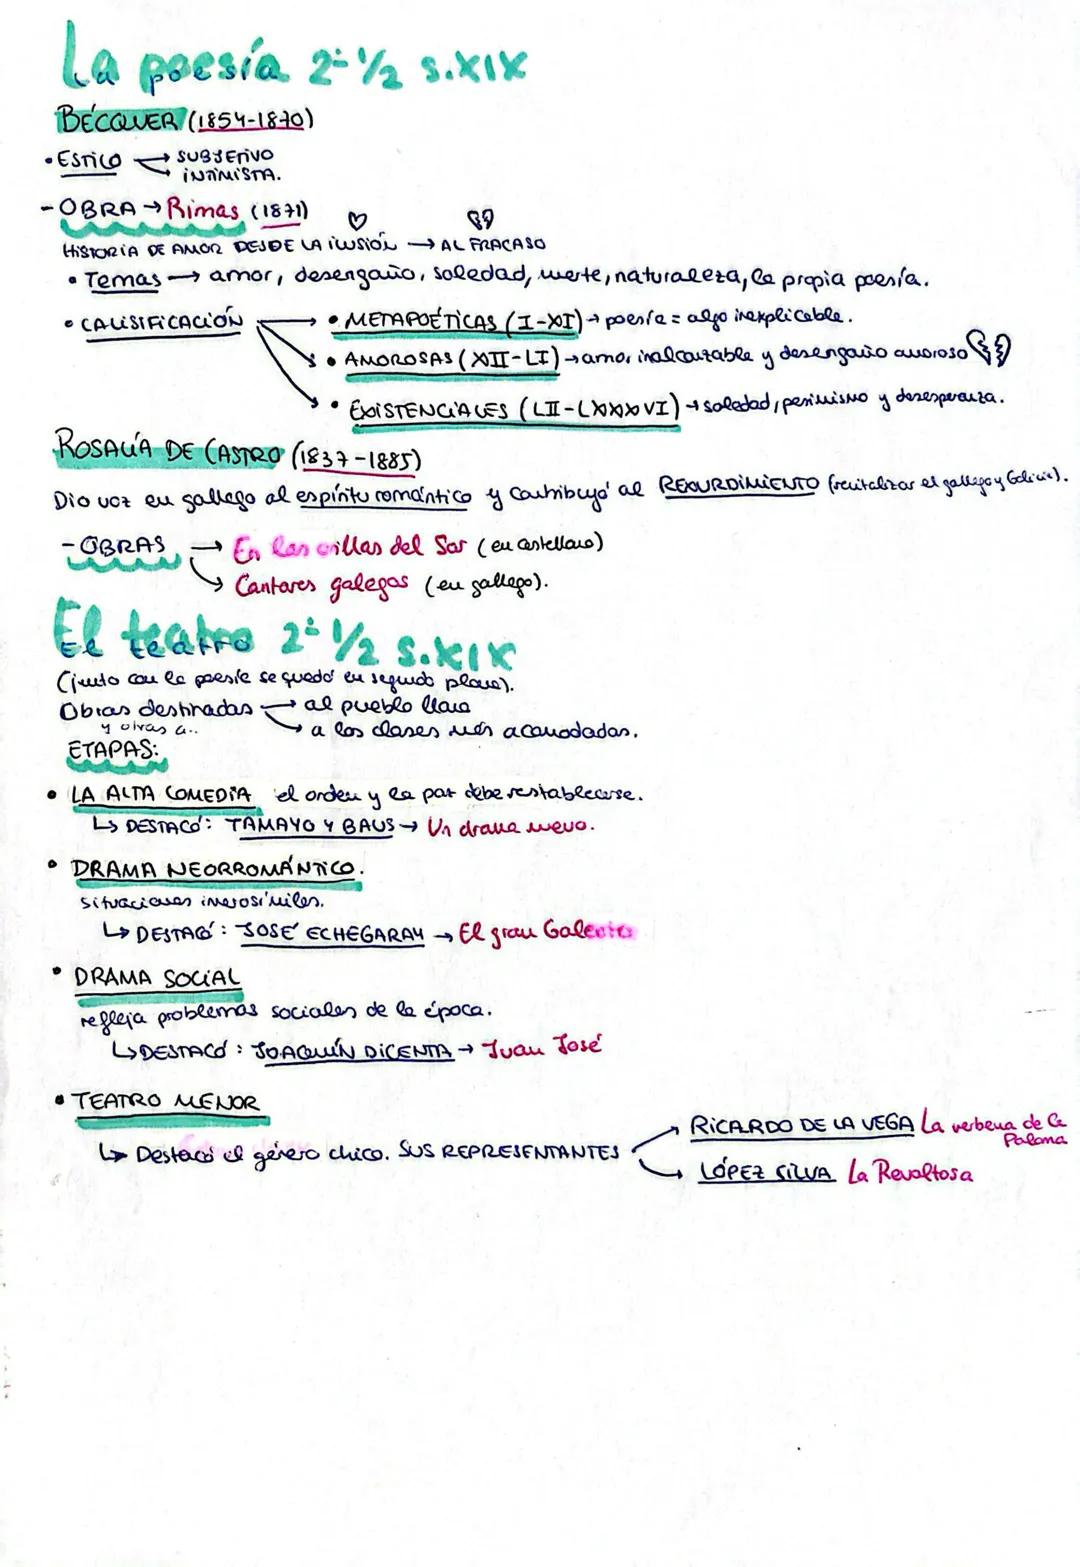 La poesía 2ª 1/2 s.XIX
BÉCQUER (1854-1870)
• ESTILO → SUBJETIVO
→ INTIMISTA.
- OBRA → Rimas (1871)
HISTORIA DE AMOR DESDE LA ilusión → AL FRACASO
• Temas → amor, desengaño, soledad, muerte, naturaleza, la propia poesía.
• CALISIFICACIÓN → • METAPOÉTICAS (I-XI) → poesía = algo inexplicable.
• AMOROSAS (XII-LI) → amor inalcanzable y desengaño amoroso
• EXISTENCIALES (LII-LXXXVI) → soledad, pesimismo y desesperanza.
ROSALÍA DE CASTRO (1837-1885)
Dio voz en gallego al espíritu romántico y contribuyó al REXURDIMIENTO (revitalizar el gallego y Galicia).
- OBRAS → En las orillas del Sar (en castellano)
→ Cantares galegos (en gallego).
El teatro 2ª 1/2 s.XIX
(junto con la poesía se quedó en segundo plano).
Obras destinadas → al pueblo llano
y otras a.. → a los clases más acomodadas.
ETAPAS:
• LA ALTA COMEDIA el orden y la paz debe restablecerse.
↳ DESTACÓ: TAMAYO Y BAUS → Un drama nuevo.
• DRAMA NEORROMÁNTICO.
situaciones inverosímiles.
↳ DESTACÓ: JOSÉ ECHEGARAY → El gran Galeoto
• DRAMA SOCIAL
refleja problemas sociales de la época.
↳ DESTACÓ: JOAQUÍN DICENTA → Juan José
• TEATRO MENOR
↳ Destacó el género chico. SUS REPRESENTANTES → RICARDO DE LA VEGA La verbena de la Paloma
→ LÓPEZ SILVA La Revoltosa